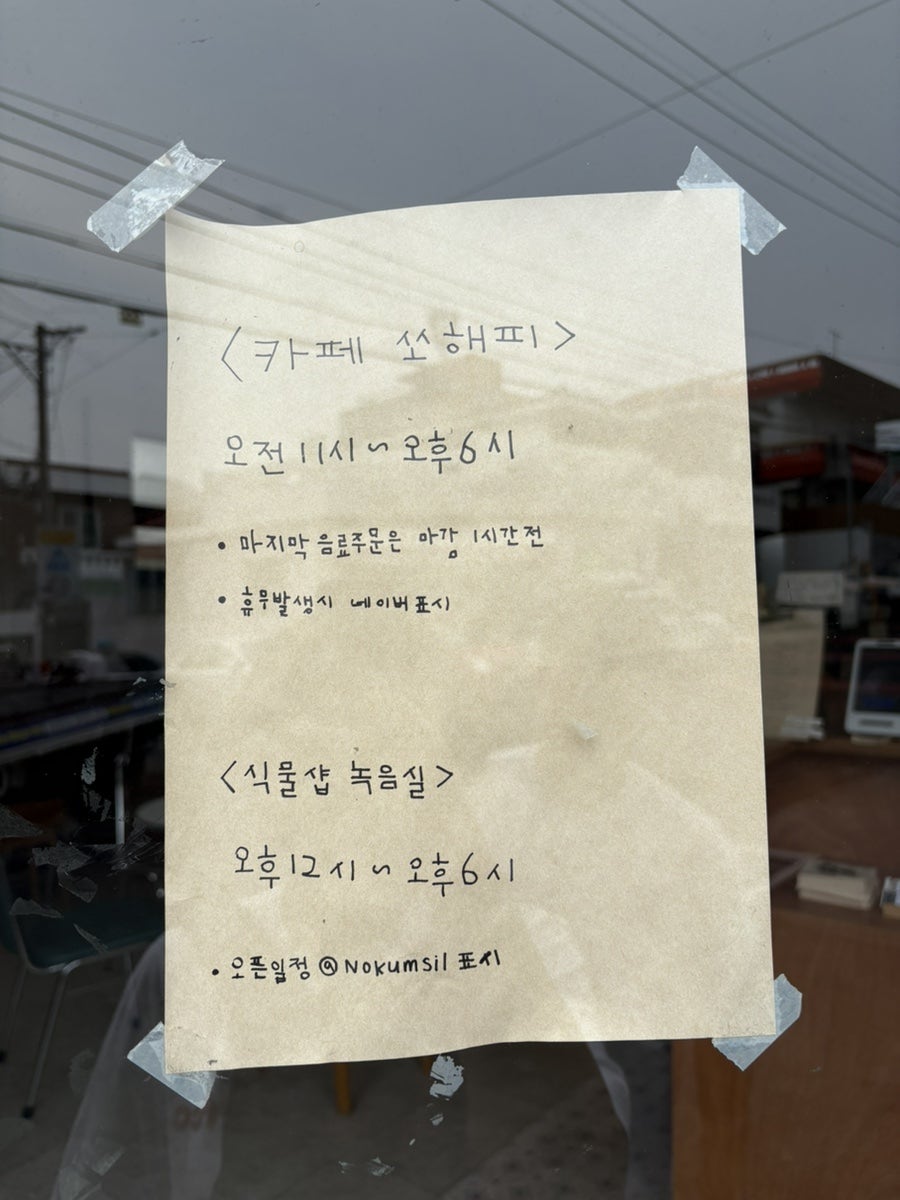 <카페 쏘해피>
오전 11시 ~ 오후 6시
• 마지막 음료주문은 마감 1시간 전
• 휴무발생시 네이버 표시
<식물샵 녹음실>
오후 12시 ~ 오후 6시
• 오픈일정 @Nokumsil 표시